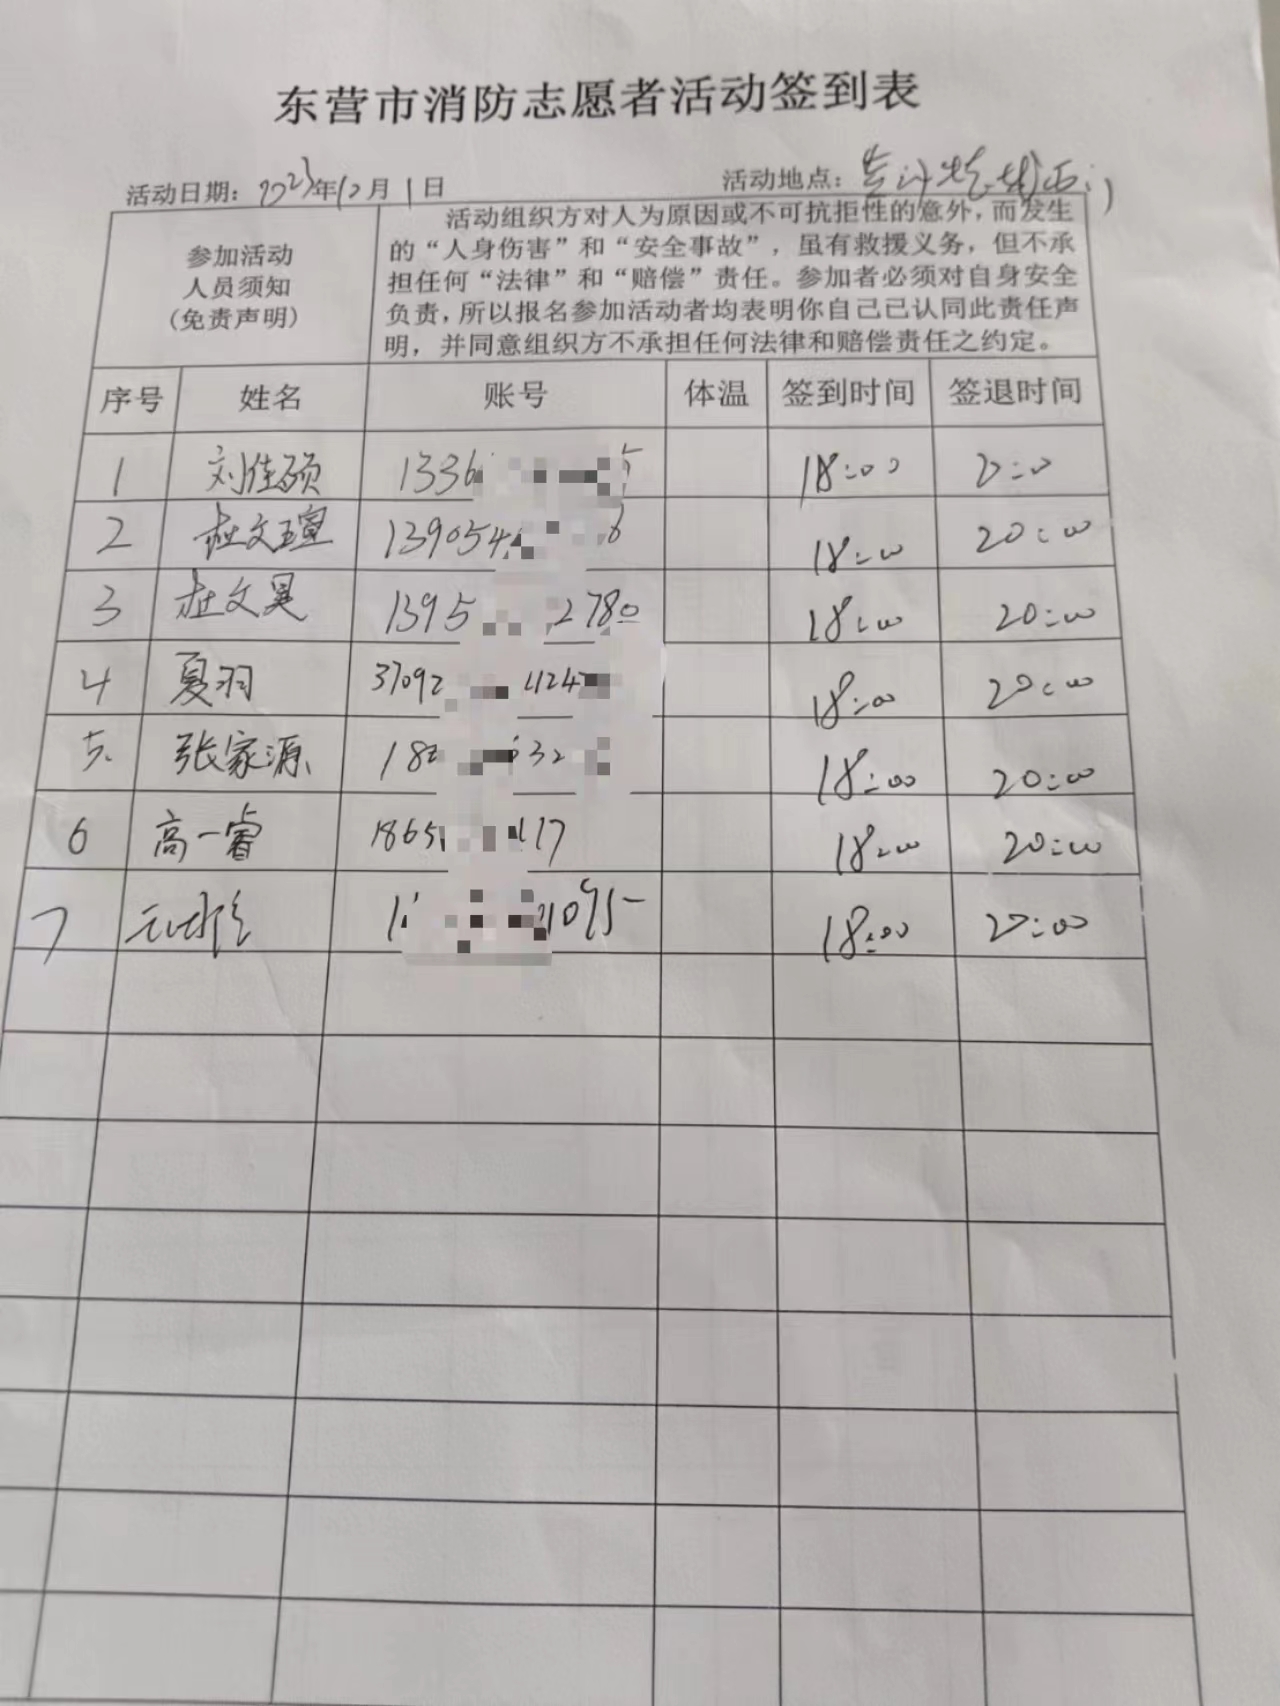 东营市消防志愿者活动签到表
活动日期：2023年12月1日 活动地点：
参加活动
人员须知
(免责声明)
活动组织方对人为原因或不可抗拒性的意外，而发生
的“人身伤害”和“安全事故”，虽有救援义务，但不承
担任何“法律”和“赔偿”责任。参加者必须对自身安全
负责，所以报名参加活动者均表明你自己已认同此责任声
明，并同意组织方不承担任何法律和赔偿责任之约定。
序号 姓名 账号 体温 签到时间 签退时间
1 刘佳硕 1336 5 18:00
2 杜文瑄 139054 6 18:00 20:00
3 杜文昊 1395 2780 18:00 20:00
4 夏羽 37092 424 18:00 20:00
5. 张家源 18 32 18:00 20:00
6 高一睿 1865 117 18:00 20:00
7 1 1095 18:00 20:00